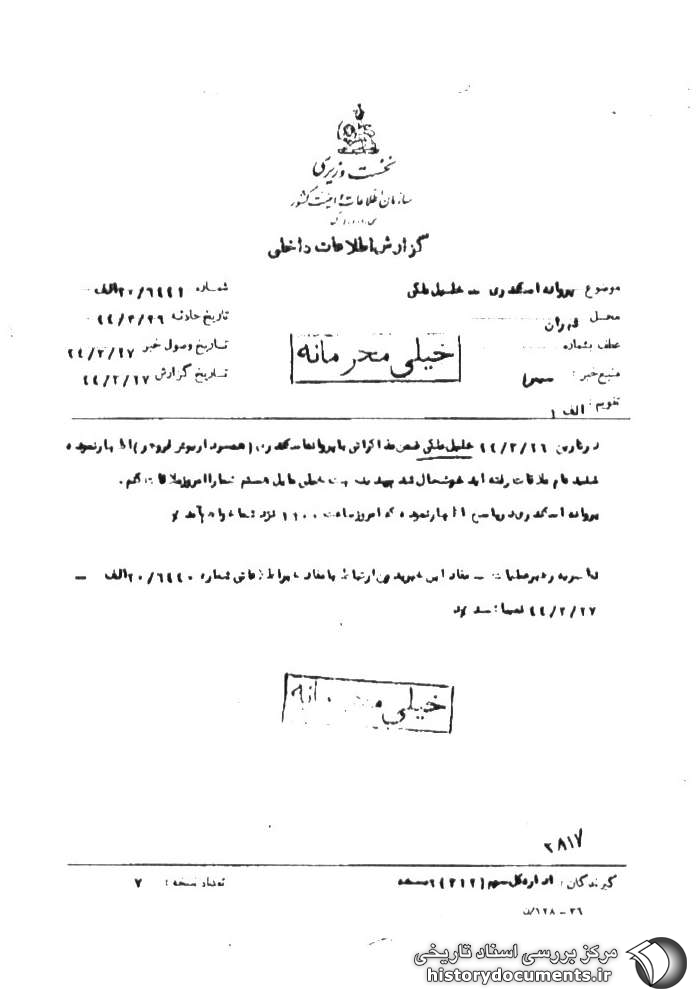 نخست وزیری
سازمان اطلاعات و امنیت کشور
س.ا.و.ا.ک
گزارش اطلاعات داخلی
موضوع پروانه اسکندری ــ خلیل ملکی
شماره ۶۴۴۱/۲۰الف
محل تهران
تاریخ حادثه ۴۴/۲/۲۶
عطف بشماره
تاریخ وصول خبر ۴۴/۲/۲۷
منبع خبر :
تاریخ گزارش ۴۴/۲/۲۷
تقویم : الف ۱
خیلی محرمانه
در تاریخ ۴۴/۲/۲۶ خلیل ملکی ضمن مذاکراتی با پروانه اسکندری (همسر داریوش فروهر) اظهار نموده
شنیده‌ام ملاقات رفته اید خوشحال شدم خیلی مایل هستم شما را امروز ملاقات کنم .
پروانه اسکندری در پاسخ اظهار نموده که امروز ساعت ۱۱۰۰ نزد شما خواهم آمد
نظریه رهبر عملیات ــ مفاد این خبر بی ارتباط با مفاد خبر شماره ۶۴۴۰/۲۰الف ــ
۴۴/۲/۲۷
خیلی محرمانه
۲۸۱۷
گیرندگان : اداره کل سوم (۳۱۲) ۲نسخه
تعداد نسخه : ۷
۳۶ – ۱۲۸/د
مرکز بررسی اسناد تاریخی
historydocuments.ir